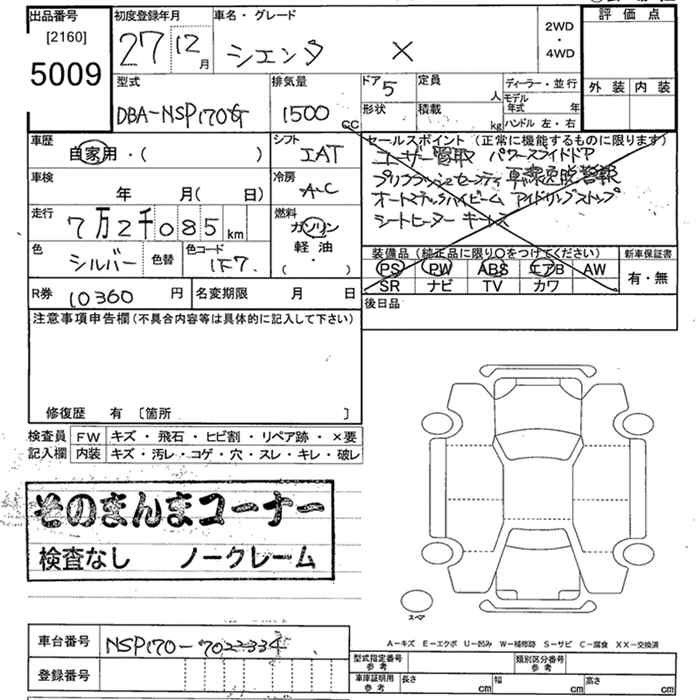 出品番号 初度登録年月 車名・グレード 評価点
[2160] 5009
27年12月 シエンタ X 2WD・4WD
外装 内装
型式 排気量 ドア 5 定員 人 ディーラー・並行
DBA-NSP170G 1500cc 形状 積載 kg モデル年式 年
ハンドル 左・右
車歴 シフト セールスポイント(正常に機能するものに限ります)
自家用・( ) IAT ユーザー買取 パワースライドドア
車検 冷房 プリクラッシュセーフティ 車線逸脱警報
年 月( 日) AC オートマチックハイビーム アイドリングストップ
走行 燃料 シートヒーター キーレス
7万2千085km ガソリン
軽油
(・)
色 シルバー 色替 色コード 1F7
装備品(純正品に限り○をつけてください) 新車保証書
PS PW ABS エアB AW 有・無
SR ナビ TV カワ
R券 10360円 名変期限 月 日 後日品
注意事項申告欄(不具合内容等は具体的に記入して下さい)
修復歴 有 〔箇所 〕
検査員 FW キズ・飛石・ヒビ割・リペア跡・×要
記入欄 内装 キズ・汚レ・コゲ・穴・スレ・キレ・破レ
そのまんまコーナー
検査なし ノークレーム
スペア
A-キズ E-エクボ U-凹み W-補修跡 S-サビ C-腐食 XX-交換済
車台番号 NSP170-7022334
登録番号
型式指定番号 参考 類別区分番号 参考
車庫証明用 参考 長さ cm 幅 cm 高さ cm